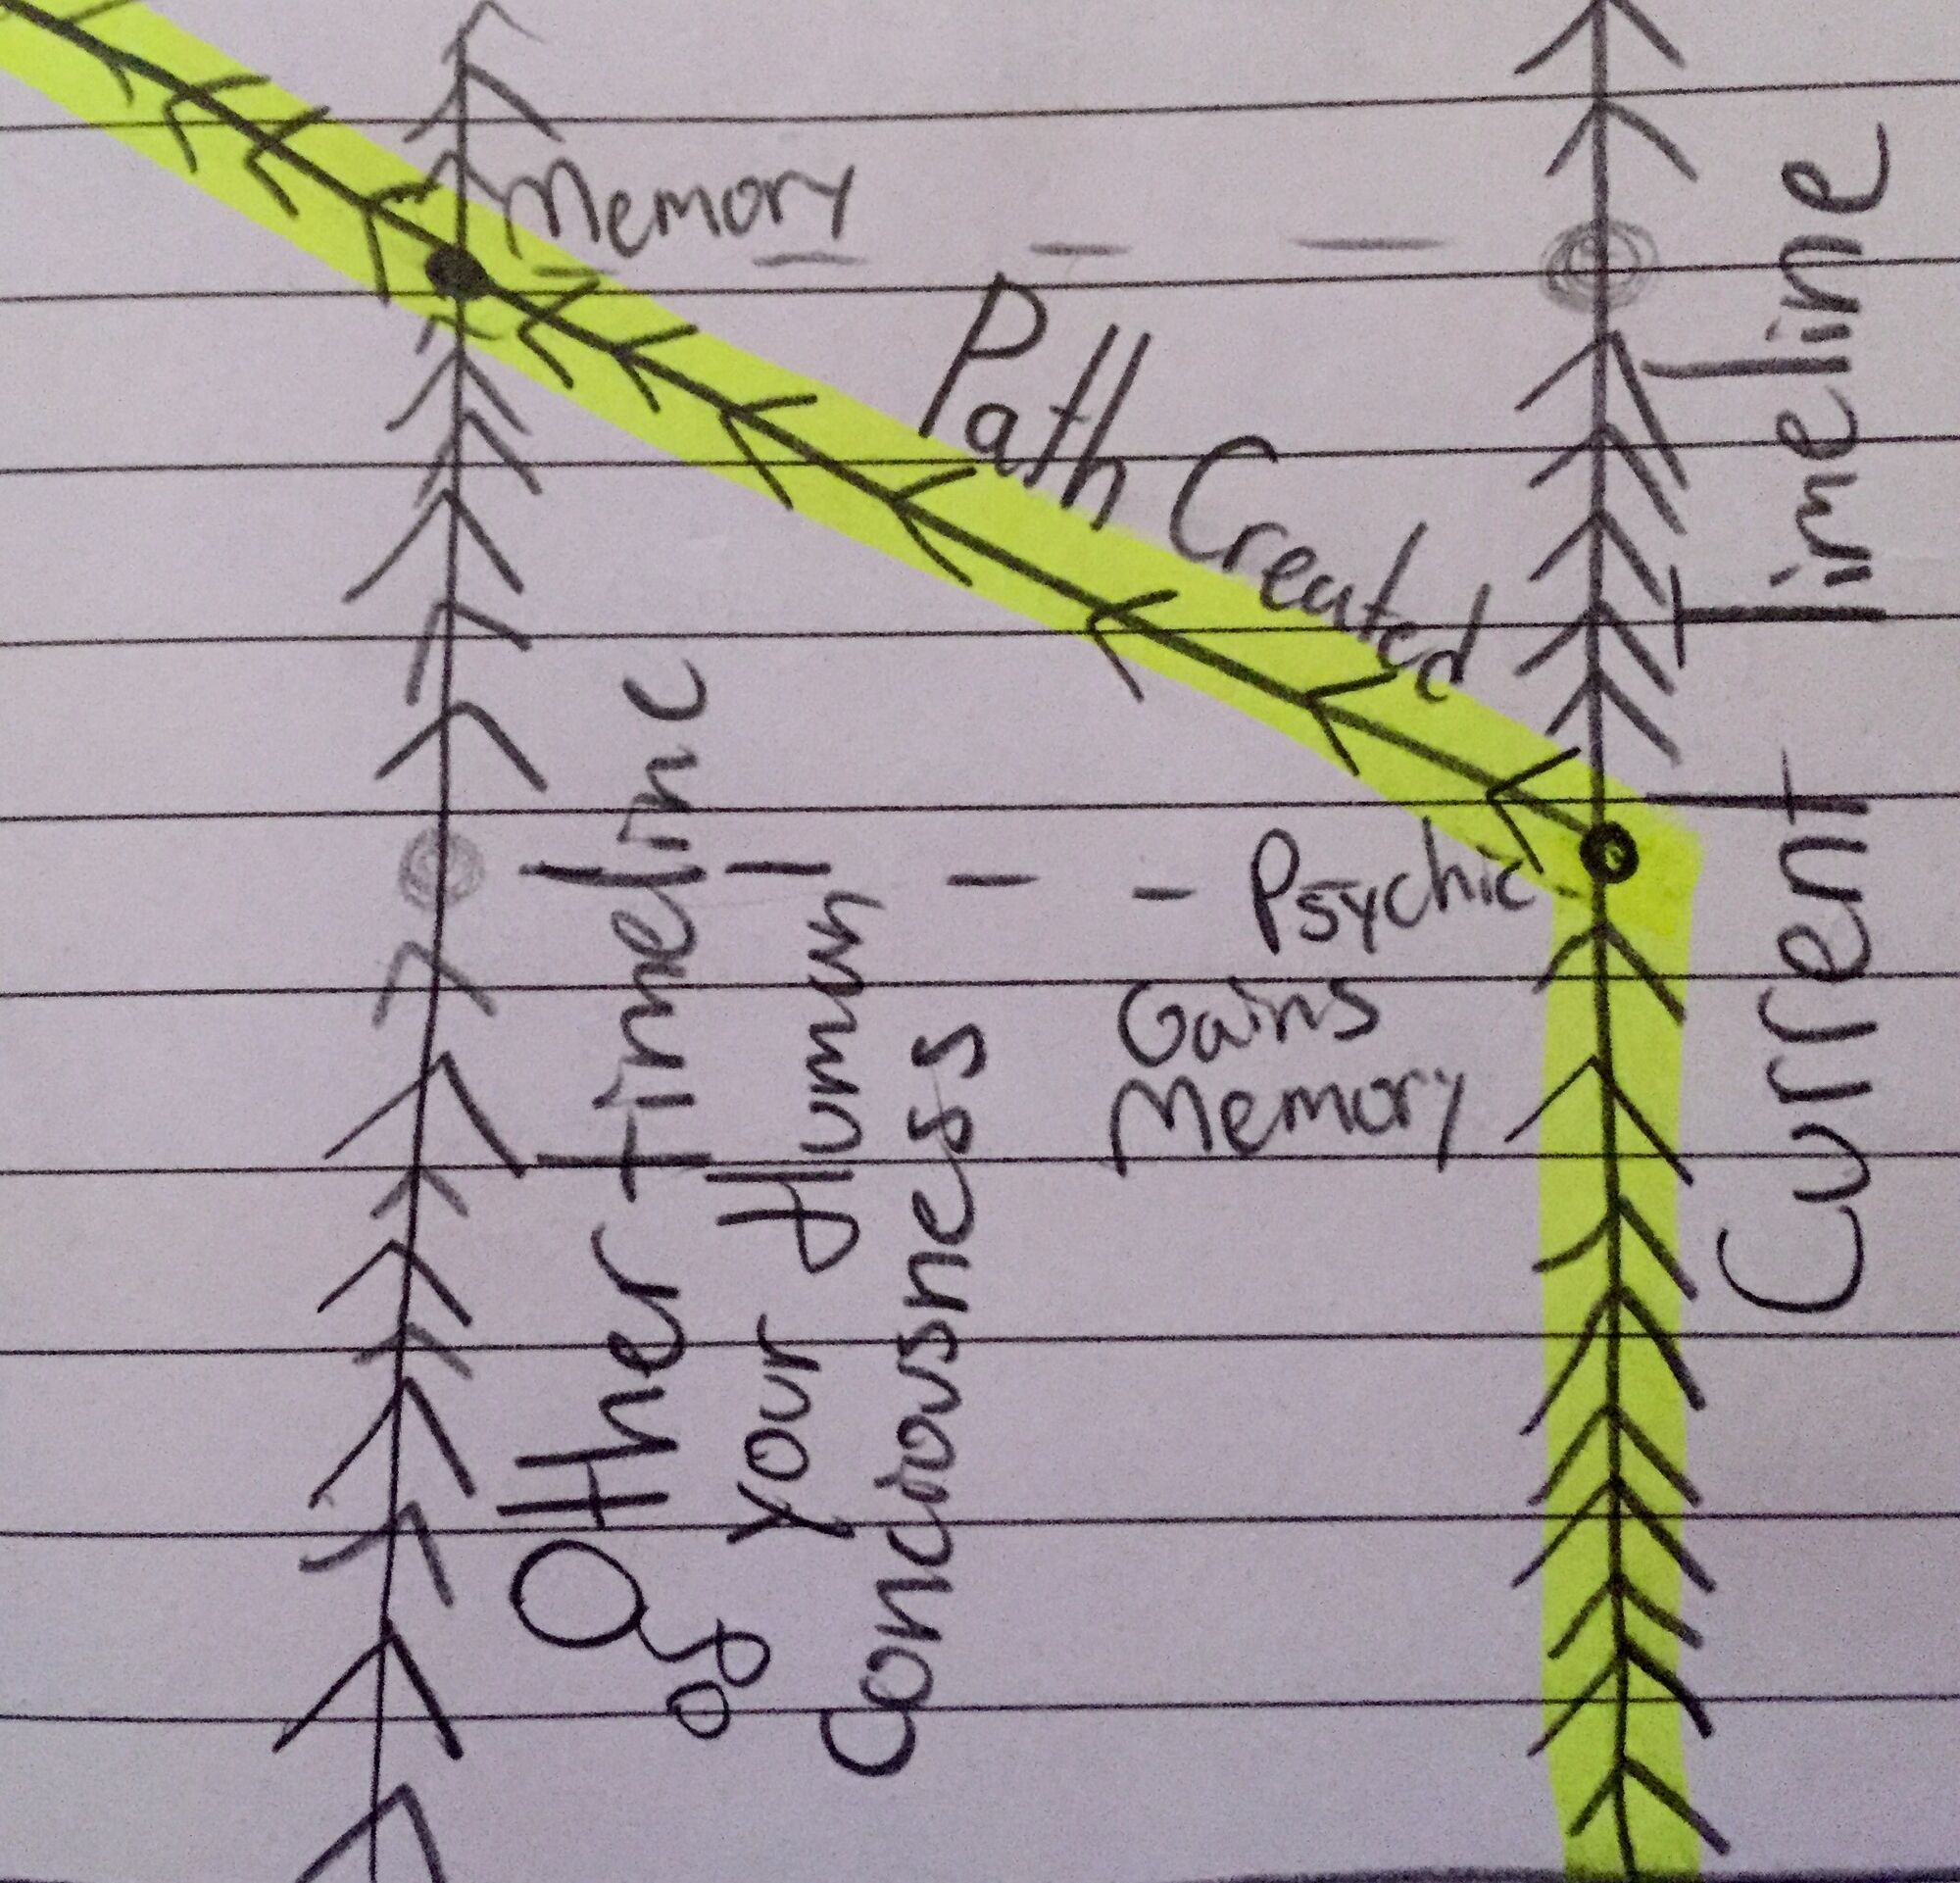 Memory
Path Created
Current Timeline
Psychic
Gains
Memory
Other timeline
og your Human
conciousness